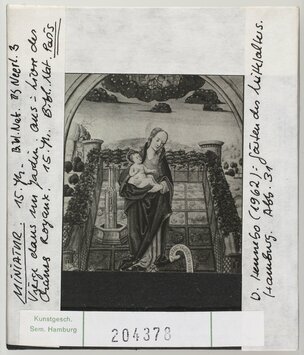 MINIATUR 15. Jh. Bibl. Nat. Neerl. 3
Vierge dans un jardin, aus: Livre des
Chants Royaux. 15. Jh. Bibl. Nat. Paris
D. Hennebo (1962): Gärten des Mittelalters.
Hamburg. Abb. 3
Kunstgesch.
Sem. Hamburg
204378